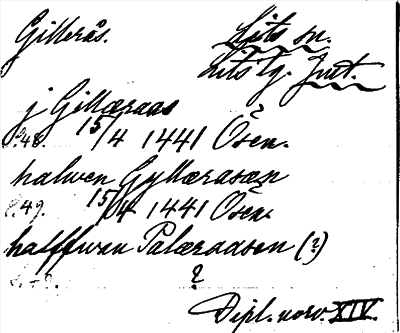 Gillerås. Lits sn.
Lits tg. Jmt.
j Gillæraas
s. 48. 15/4 1441 Ösen.
halwen Gyllæraasæn
s. 49. 15/4 1441 Ösen.
halffwan Palæraasen (?)
?
Dipl. norv. XIV.